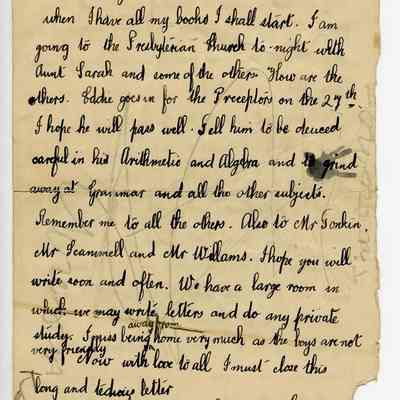 when I have all my books I shall start. I am
going to the Presbyterian Church to-night with
Aunt Sarah and some of the others. How are the
others. Eddie goes in for the Preceptors on the 27th.
I hope he will pass well. Tell him to be
careful in his Arithmetic and Algebra and to grind
away at Grammar and all the other subjects.
Remember me to all the others. Also to Mr Tonkin,
Mr Scammell and Mr Willams. I hope you will
write soon and often. We have a large room in
which we may write letters and do any private
away from
study. I miss being home very much as the boys are not
very friendly
Now with love to all I must close this
long and tedious letter